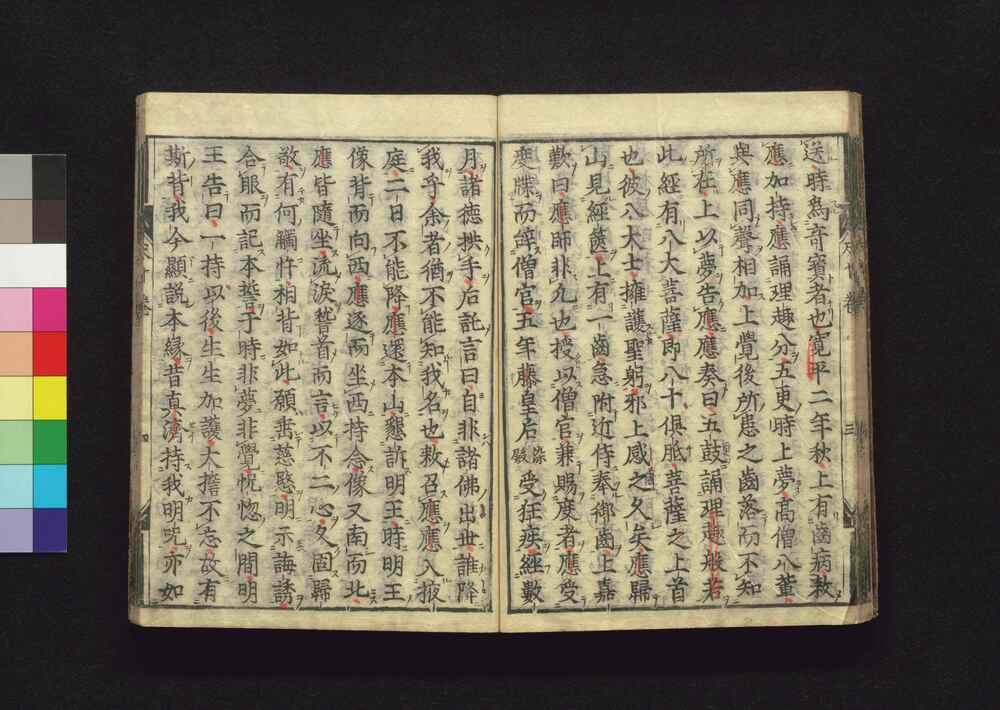 送時爲奇寶者也寛平二年秋上有齒病敕
應加持應誦理趣分五更時上夢高僧八輩
與應同聲相加上覺後所患之齒落而不知
所在上以夢告應應奏曰五鼓誦理趣般若
此經有八大菩薩即八十俱胝菩薩之上首
也彼八大士擁護聖躬邪上感之久矣應歸
山見經篋上有一齒急附近侍奉御齒上嘉
歎曰應師非凡也授以僧官兼賜度者應受
度牒而辭僧官五年藤皇后染殿受狂疾經數
月諸德拱手后託言曰自非諸佛出世誰降
我乎余者猶不能知我名也敕召應應入掖
庭二日不能降應還本山懇訴明王時明王
像背而向西應逐而坐西持念像又南而北
應皆隨坐流淚稽首而言以不二心久固歸
敬有何觸忤相背如此願埀慈愍明示誨誘
合眼而記本誓于時非夢非覺恍惚之間明
王告曰一持以後生生加護大擔不忘故有
斯背我今顯説本縁昔真濟持我明咒亦如
三